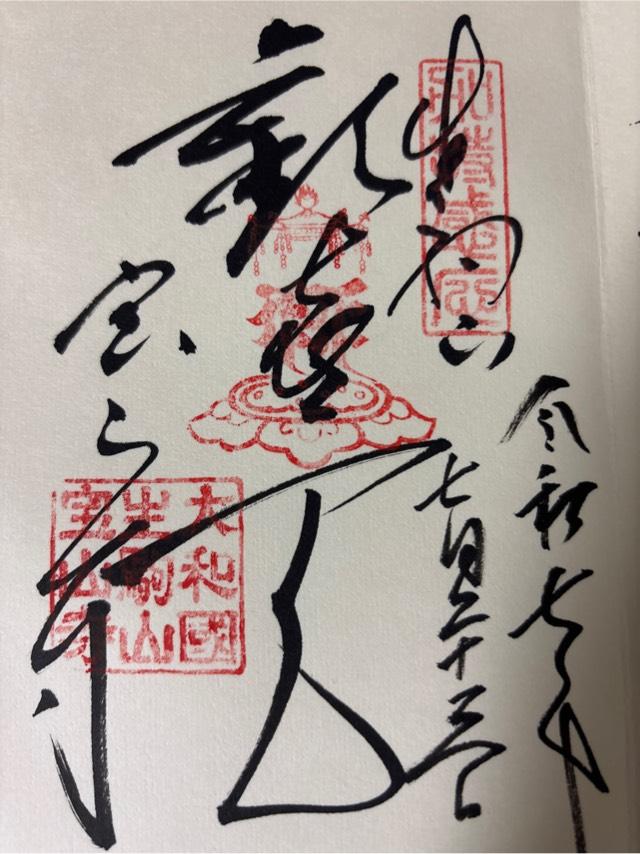 令和七年
七月二十三日
生駒山
歓喜天
宝山寺
大和國
生駒山
宝山寺